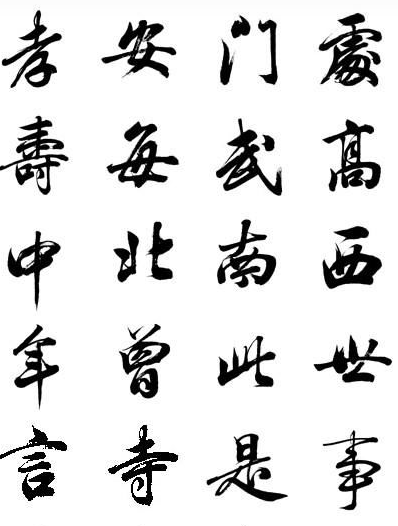 孝安門處
壽每武高
中北南西
年曾此世
言寺是事